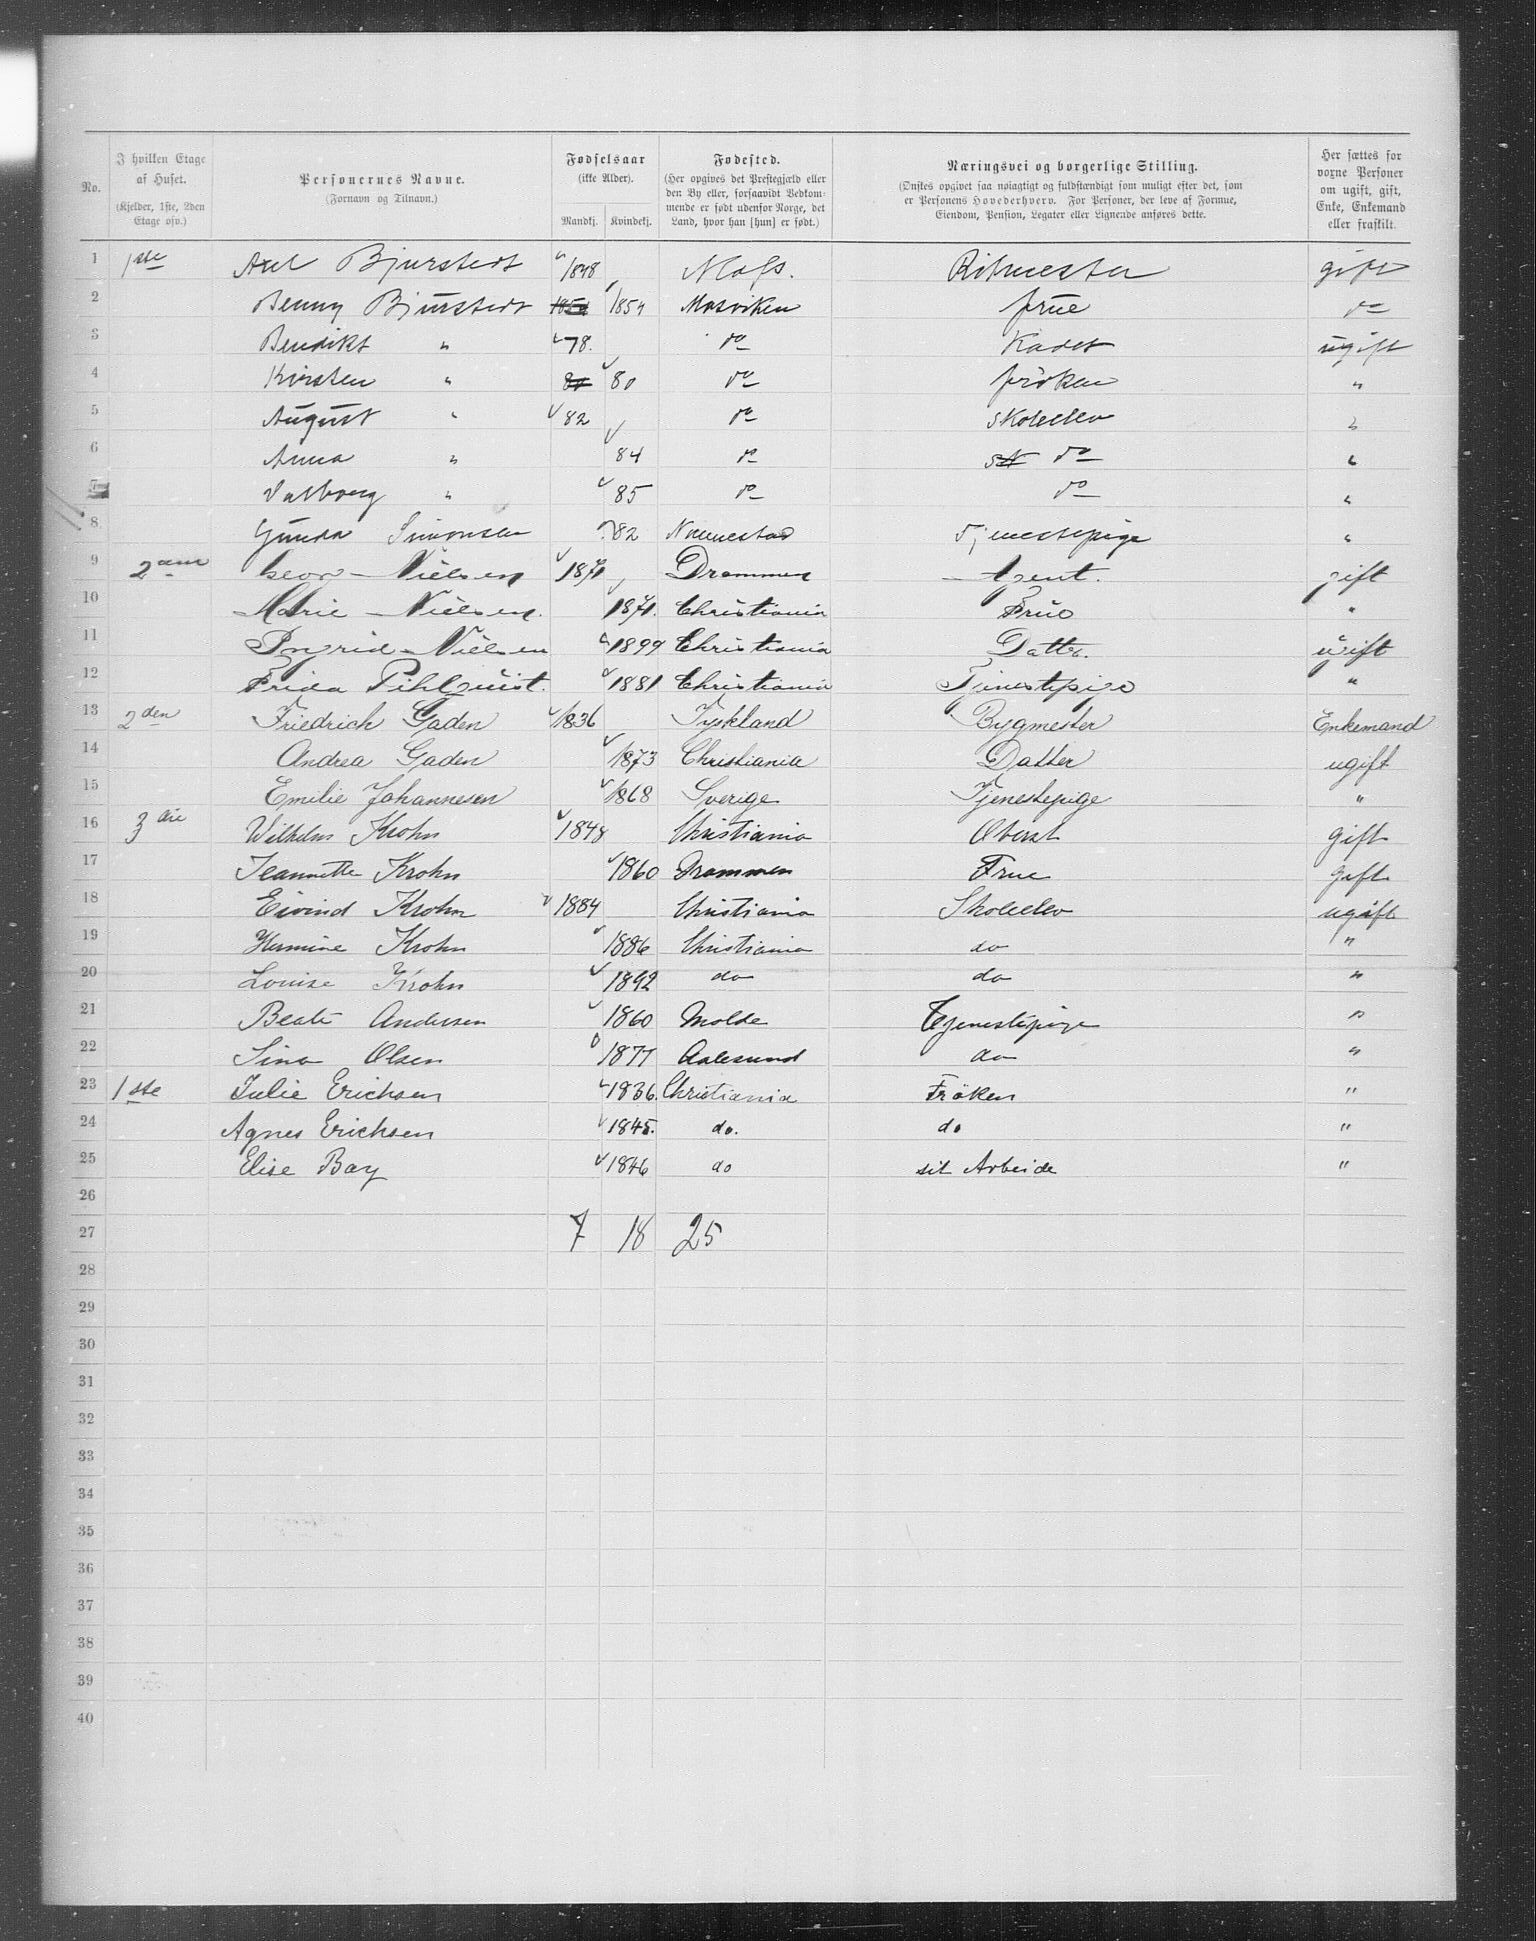 No. I hvilken Etage af Huset. (Kjelder, 1ste, 2den Etage osv.) Personernes Navne. (Fornavn og Tilnavn.) Fødselsaar (ikke Alder). Mandkj. Kvindekj. Fødested. (Her opgives det Prestegjæld eller den By eller, forsaavidt Vedkommende er født udenfor Norge, det Land, hvor han [hun] er født.) Næringsvei og borgerlige Stilling. (Ønskes opgivet saa nøiagtigt og fuldstændigt som muligt efter det, som er Personens Hovederhverv. For Personer, der leve af Formue, Eiendom, Pension, Legater eller Lignende anføres dette. Her sættes for voxne Personer om ugift, gift, Enke, Enkemand eller fraskilt.
1 1ste Axel Bjurstedt 1848 Moss. Ritmester gift
2 Benny Bjurstedt 1854 Mosviken frue do
3 Bendikt " 78. do Kadet ugift
4 Kirsten " 80 do frøken "
5 August " 82 do Skoleelev "
6 Anna " 84 do do "
7 Valborg " 85 do do "
8 Gunda Simonsen 82 Tjenestepige "
9 2den Georg Nielsen 1871 Drammen Agent. gift
10 Marie Nielsen. 1871. Christiania Frue "
11 Ingrid Nielsen 1899 Christiania Datter. ugift
12 Frida Pihlquist. 1881 Christiania Tjenestepige "
13 2den Friedrich Gaden 1836 Tyskland Bygmester Enkemand
14 Andrea Gaden 1873 Christiania Datter ugift
15 Emilie Johannesen 1868 Sverige Tjenestepige "
16 3die Wilhelm Krohn 1848 Christiania Oberst gift
17 Jeannette Krohn 1860 Drammen Frue gift
18 Eivind Krohn 1884 Christiania Skoleelev ugift
19 Hermine Krohn 1886 Christiania do "
20 Louise Krohn 1892 do do "
21 Beate Andersen 1860 Molde Tjenestepige "
22 Sina Olsen 1877 Aalesund do "
23 1ste Julie Erichsen 1836. Christiania Frøken "
24 Agnes Erichsen 1845. do. do "
25 Elise Bay 1846 do sit Arbeide "
26
27 7 18 25
28
29
30
31
32
33
34
35
36
37
38
39
40